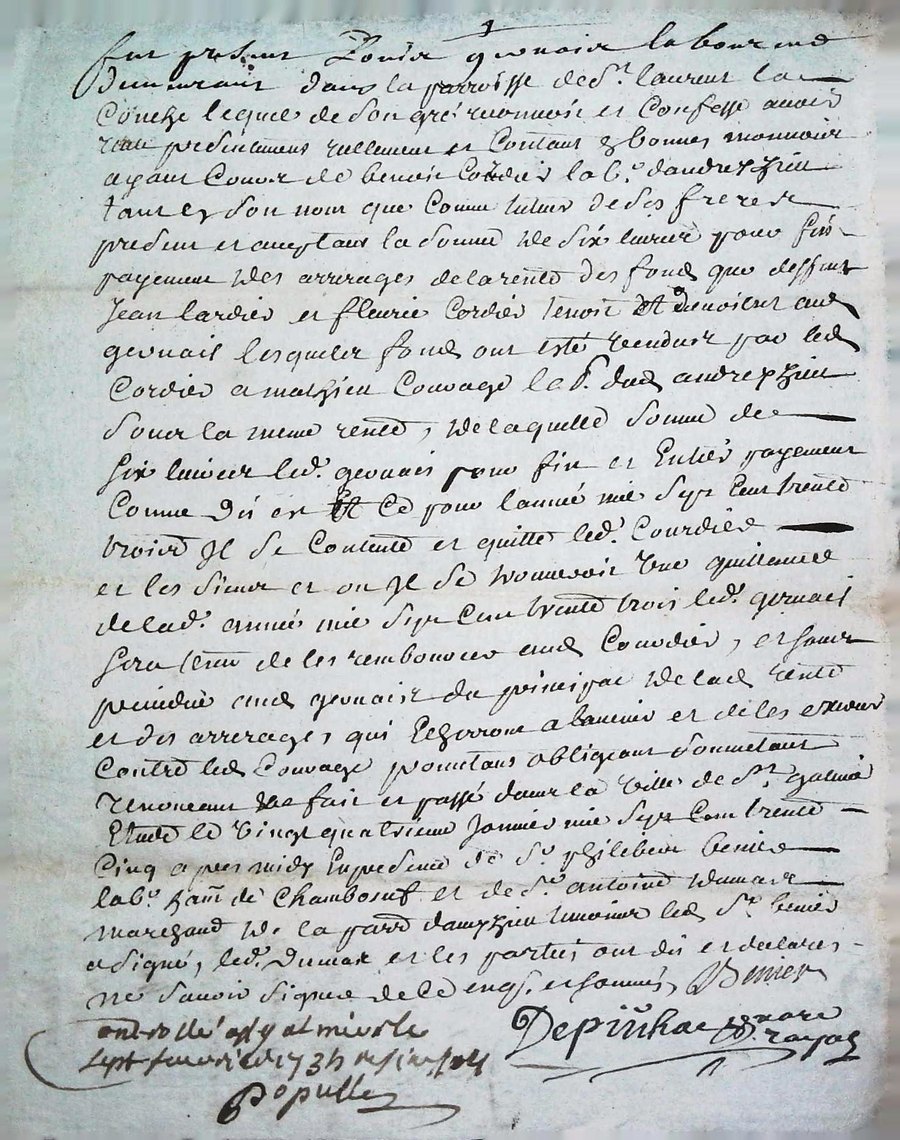 fut present Louis gervais laboureur
demeurant dans la parroisse de St. laurent la
Conche lequel de son gré reconnoit et Confesse avoir
receu presentement reellement et Contant & bonnes monnoies
ayant Cours de benoit Cordier lab.r dandrezieu
tant en son nom que Comme tuteur de ses freres
present et acceptant la somme de six livres pour fin
payement des arrerages de la rente des fonds que deffunts
Jean Cordier et fleurie Cordier tenoit et devoient aud
gervais lesquels fonds ont esté vendus par led
Cordier a mathieu Couvage lab.r dud andrezieu
sous la meme rente, de laquelle somme de
six livres led. gervais pour fin et Entier payement
Comme dit est Et Ce pour l'année mil sept Cent trente
trois Il se Contente et quitte led. Courdier
et les siens et ou Il se trouveroit une quittance
de lad. année mil sept Cent trente trois led. gervais
sera tenu de les rembourcer aud Courdier, et sans
prejudice aud gervais du principal de lad rente
et des arrerages qui Echerront a l'avenir et de les exiger
Contre led Couvage promettant obligeant soumettant
renonceant fait et passé dans la ville de St galmier
Etude le vingt quatrieme Janvier mil sept Cent trente
Cinq apres midy En presence de Sr philibert benier
lab.r de Chambosuf et de Sr antoine dumas
marchand de la parr dandrezieu temoins led Sr benier
a signé, led. Dumas et les parties ont dit et declaré
ne savoir signer de ce enq. et sommés, Benier
Depinhac notre
royal
controllé a St galmier le
sept fevrier 1735 resu six sols
Populle